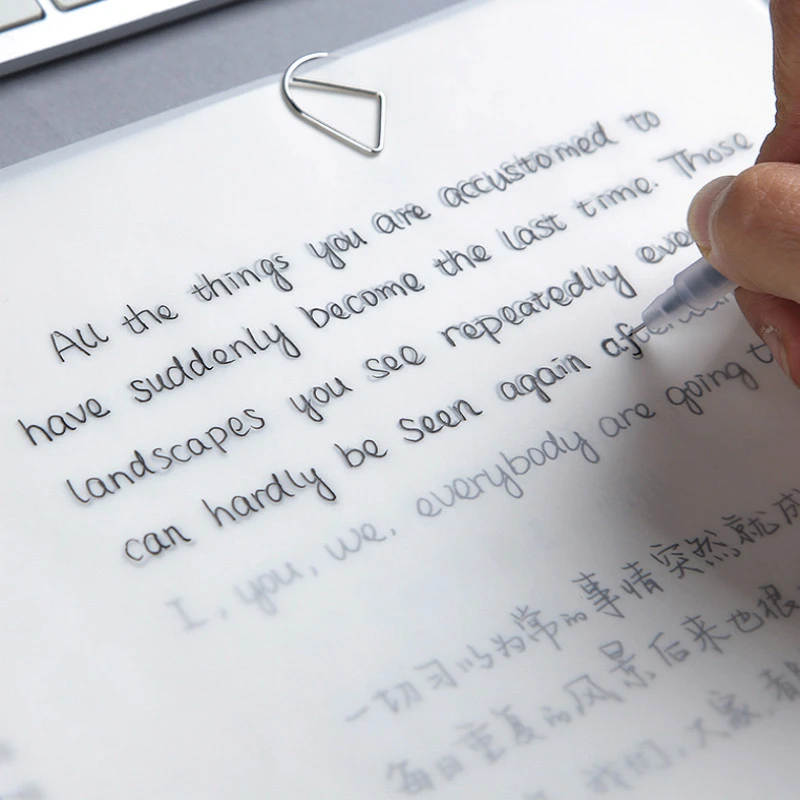 All the things you are accustomed to
have suddenly become the last time. Those
landscapes you see repeatedly
can hardly be seen again
I, you, we, everybody are going
一切习以为常的事情突然就成
每日重复的风景后来也很
我们,大家,